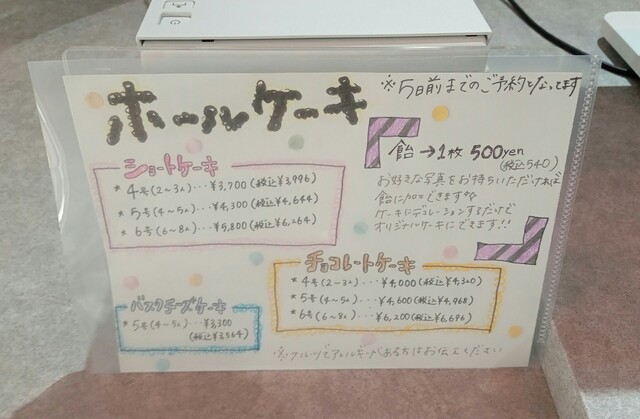 ホールケーキ
※5日前までのご予約となってます
ショートケーキ
* 4号(2~3人)…¥3,700(税込¥3,996)
* 5号(4~5人)…¥4,300(税込¥4,644)
* 6号(6~8人)…¥5,800(税込¥6,264)
飴→1枚 500yen
(税込540)
お好きな写真をお持ちいただければ
飴に加工できます
ケーキにデコレーションするだけで
オリジナルケーキにできます!!
チョコレートケーキ
* 4号(2~3人)…¥4,000(税込¥4,320)
* 5号(4~5人)…¥4,600(税込¥4,968)
* 6号(6~8人)…¥6,200(税込¥6,696)
バスクチーズケーキ
* 5号(4~5人)…¥3,300
(税込¥3,564)
※フルーツでアレルギーがある方はお伝えください